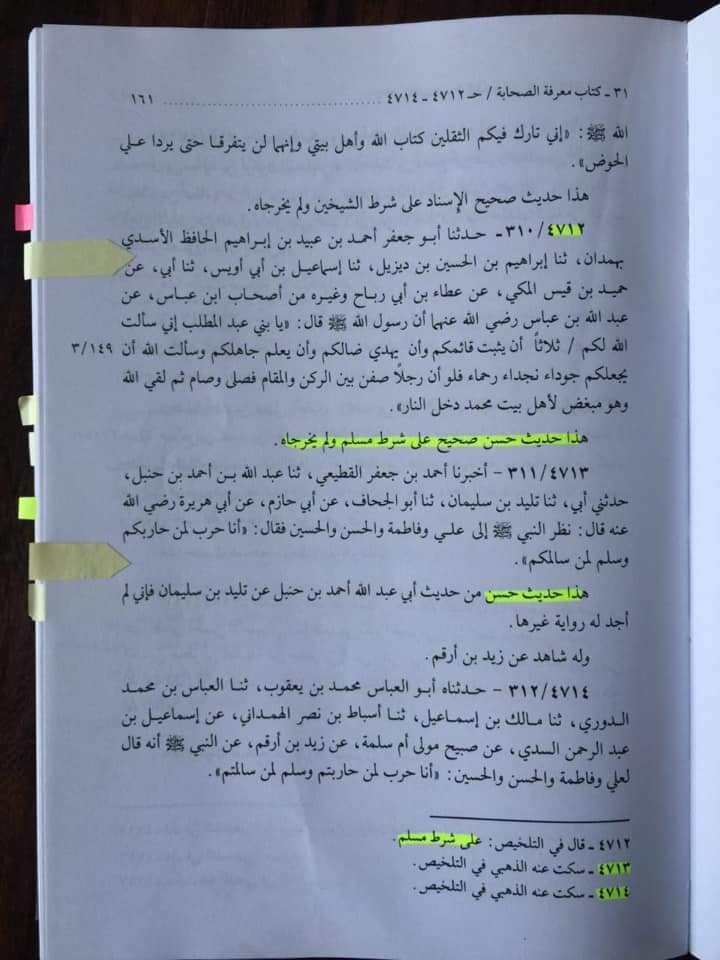 ٣١ ـ كتاب معرفة الصحابة / حـ ٤٧١٢ ـ ٤٧١٤ ........................................ ١٦١
الله ﷺ: «إني تارك فيكم الثقلين كتاب الله وأهل بيتي وإنهما لن يتفرقا حتى يردا علي
الحوض».
هذا حديث صحيح الإسناد على شرط الشيخين ولم يخرجاه.
٣١٠/٤٧١٢ ـ حدثنا أبو جعفر أحمد بن عبيد بن إبراهيم الحافظ الأسدي
بهمدان، ثنا إبراهيم بن الحسين بن ديزيل، ثنا إسماعيل بن أبي أويس، ثنا أبي، عن
حميد بن قيس المكي، عن عطاء بن أبي رباح وغيره من أصحاب ابن عباس، عن
عبد الله بن عباس رضي الله عنهما أن رسول الله ﷺ قال: «يا بني عبد المطلب إني سألت
الله لكم / ثلاثاً أن يثبت قائمكم وأن يهدي ضالكم وأن يعلم جاهلكم وسألت الله أن ٣/١٤٩
يجعلكم جوداء نجداء رحماء فلو أن رجلاً صفن بين الركن والمقام فصلى وصام ثم لقي الله
وهو مبغض لأهل بيت محمد دخل النار».
هذا حديث حسن صحيح على شرط مسلم ولم يخرجاه.
٣١١/٤٧١٣ ـ أخبرنا أحمد بن جعفر القطيعي، ثنا عبد الله بن أحمد بن حنبل،
حدثني أبي، ثنا تليد بن سليمان، ثنا أبو الجحاف، عن أبي حازم، عن أبي هريرة رضي الله
عنه قال: نظر النبي ﷺ إلى علي وفاطمة والحسن والحسين فقال: «أنا حرب لمن حاربكم
وسلم لمن سالمكم».
هذا حديث حسن من حديث أبي عبد الله أحمد بن حنبل عن تليد بن سليمان فإني لم
أجد له رواية غيرها.
وله شاهد عن زيد بن أرقم.
٣١٢/٤٧١٤ ـ حدثناه أبو العباس محمد بن يعقوب، ثنا العباس بن محمد
الدوري، ثنا مالك بن إسماعيل، ثنا أسباط بن نصر الهمداني، عن إسماعيل بن
عبد الرحمن السدي، عن صبيح مولى أم سلمة، عن زيد بن أرقم، عن النبي ﷺ أنه قال
لعلي وفاطمة والحسن والحسين: «أنا حرب لمن حاربتم وسلم لمن سالمتم».
٤٧١٢ ـ قال في التلخيص: على شرط مسلم.
٤٧١٣ ـ سكت عنه الذهبي في التلخيص.
٤٧١٤ ـ سكت عنه الذهبي في التلخيص.